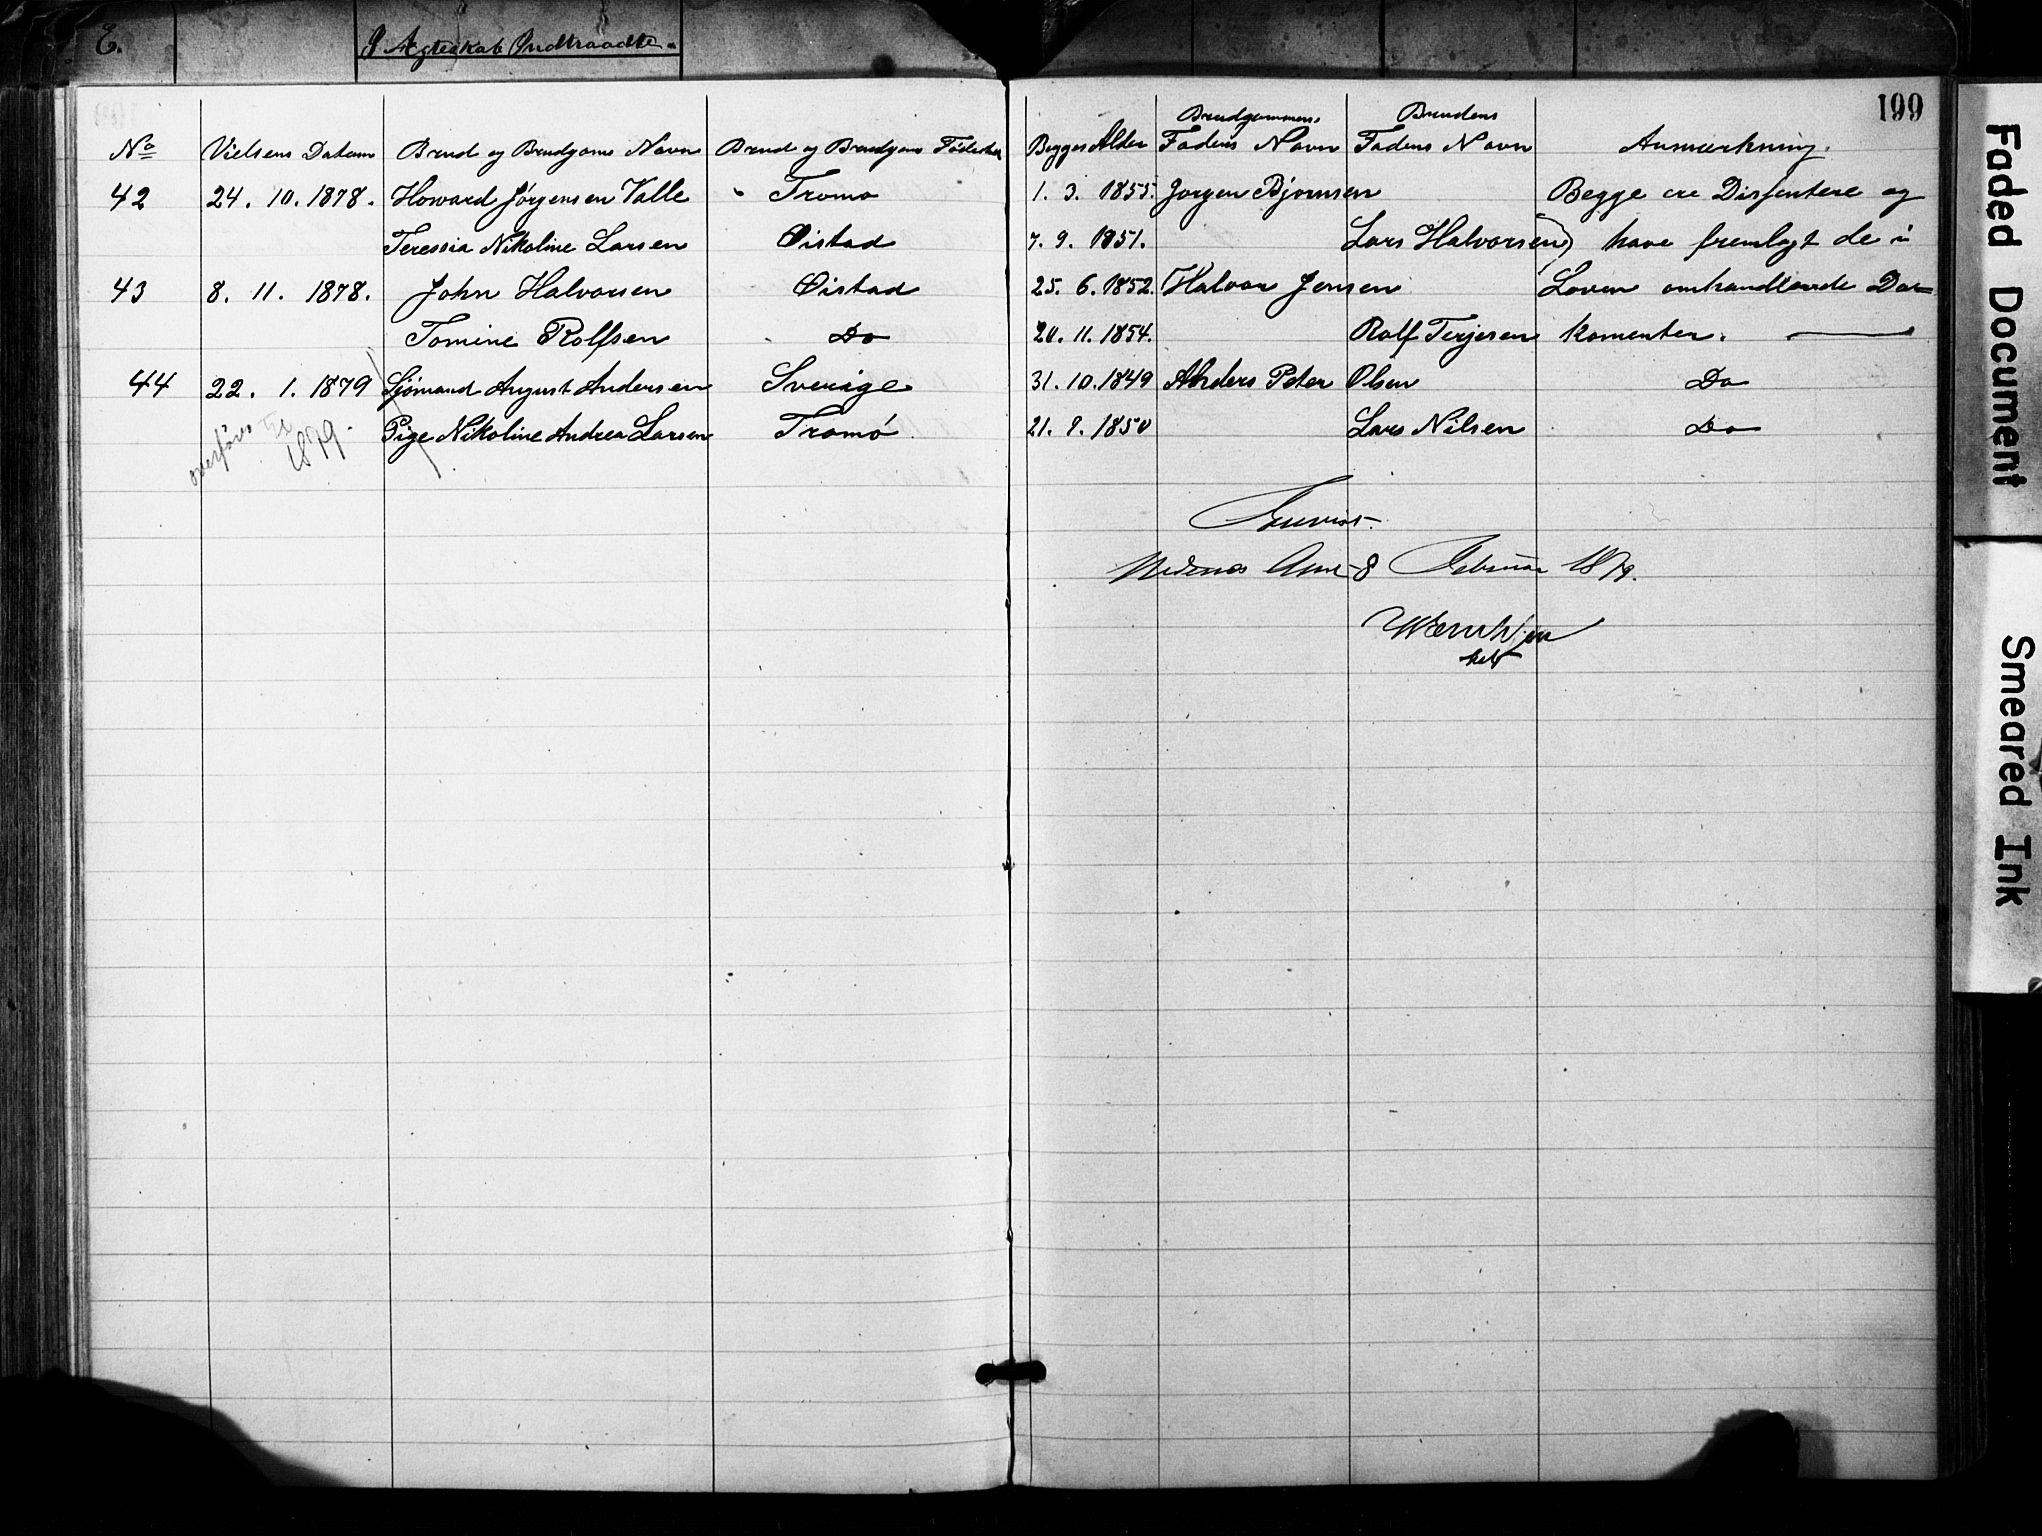 E. I Ægteskab Indtraadte.
199
Brudgommens Brudens
No Vielsens Datum Brud og Brudgoms Navn Brud og Brudgoms Födested Begges Alder Faders Navn Faders Navn Anmærkning.
42 24. 10. 1878. Howard Jörgensen Valle Tromö 1. 3. 1855. Jorgen Bjornsen Begge ere Disfentere og
Teressia Nikoline Larsen Öistad 7. 9. 1851. Lars Halvorsen) have fremlagt de i
43 8. 11. 1878. John Halvorsen Öistad 25. 6. 1852. Halvor Jensen Loven omhandlende Do-
Tomine Rolfsen Do 20. 11. 1854. Rolf Terjesen komenter.
44 22. 1. 1879 Sjömand August Andersen Sverige 31. 10. 1849 Anders Peter Olsen Do
Pige Nikoline Andrea Larsen Tromö 21. 8. 1850 Lars Nilsen Do
overföres til
1879.
Nedenes 8 Februar 1879.
Faded Document
Smeared Ink